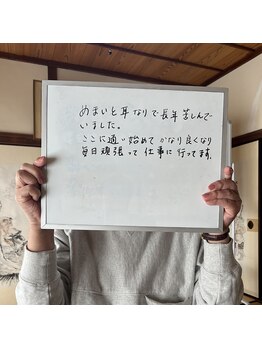 めまいと耳なりで長年苦しんで
いました。
ここに通い始めてかなり良くなり
毎日頑張って仕事に行ってます。